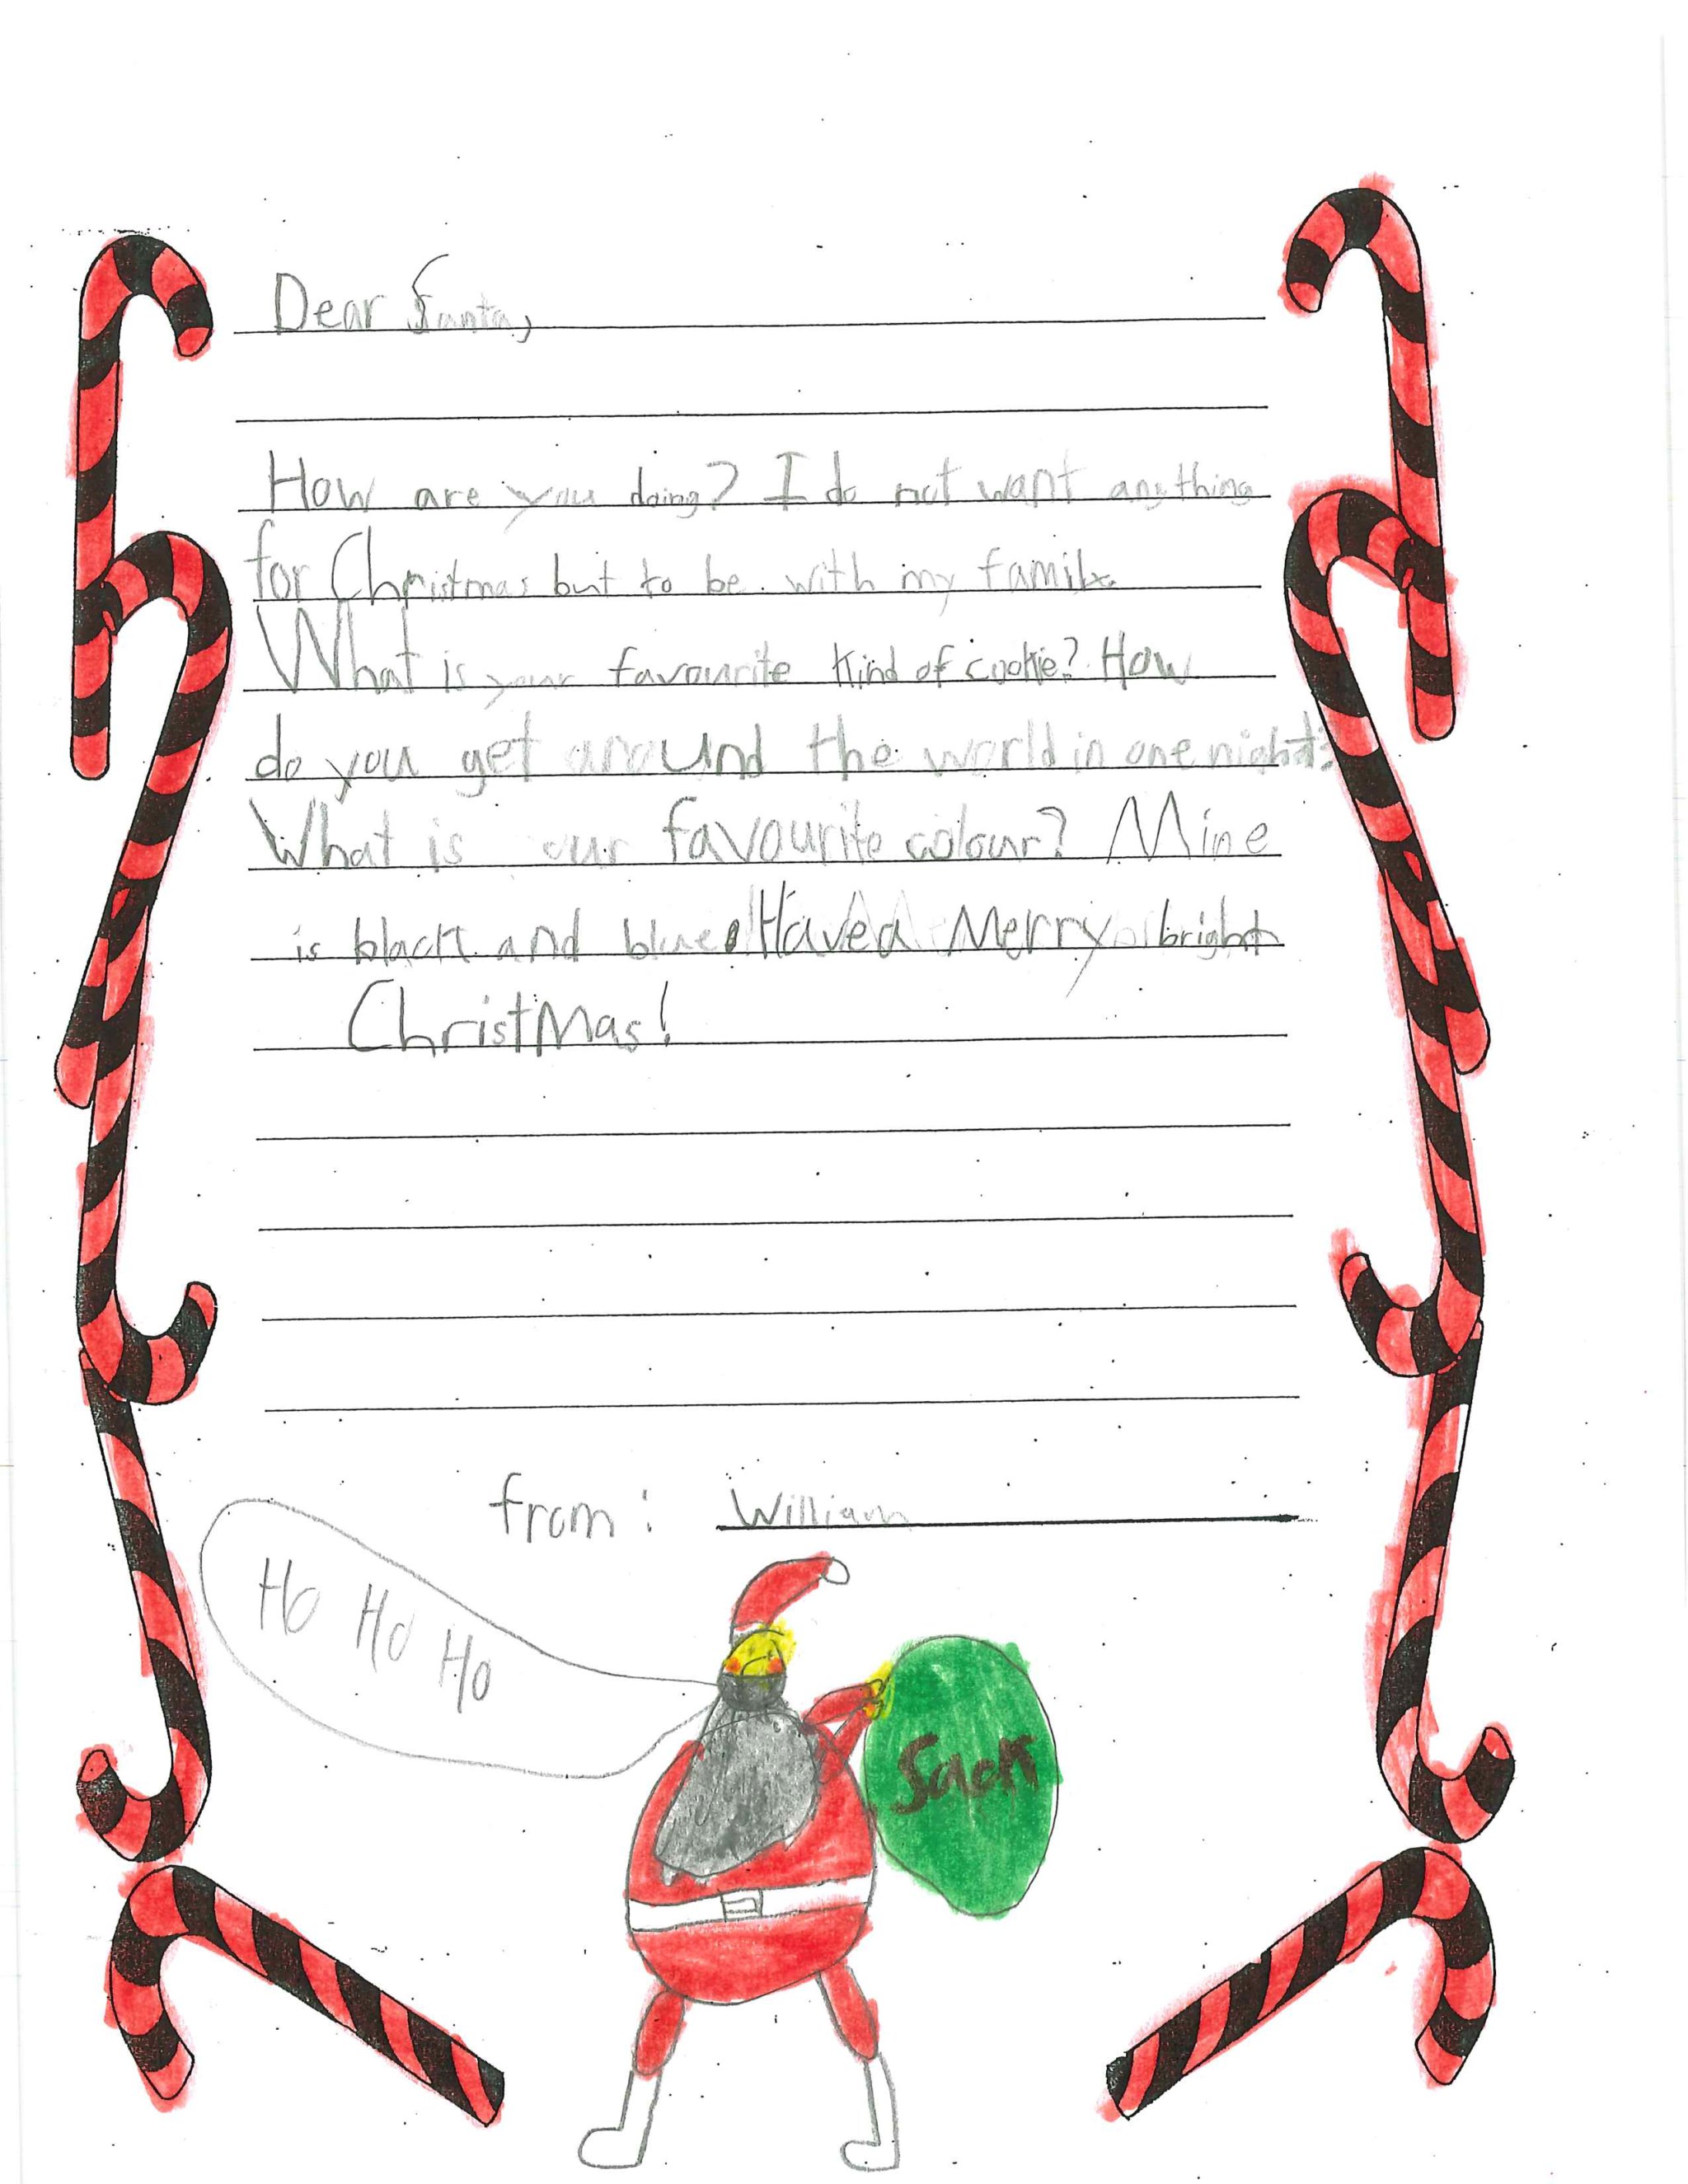 Dear Santa,
How are you doing? I do not want anything
for Christmas but to be with my family.
What is your favourite kind of cookie? How
do you get around the world in one night?
What is our favourite colour? Mine
is black and blue. Have a Merry bright
ChristMas!
from: William
Ho Ho Ho
Sack